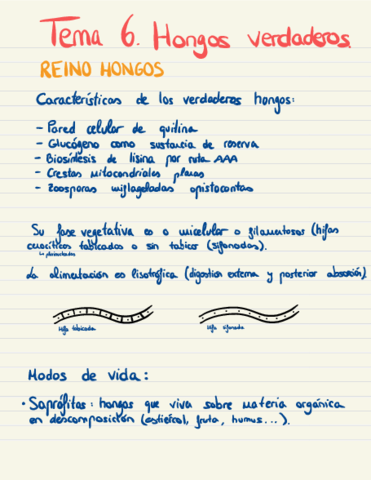 Tema 6. Hongos verdaderos.
REINO HONGOS
Características de los verdaderos hongos:
- Pared celular de quitina
- Glucógeno como sustancia de reserva
- Biosíntesis de lisina por ruta AAA
- Crestas mitocondriales planas
- Zoosporas uniflageladas opistocontas
Su fase vegetativa es o unicelular o filamentosos (hifas
cenocíticas tabicadas o sin tabicar (sifonadas).
La alimentación es lisotrófica (digestión externa y posterior absorción).
Hifa tabicada
Hifa sifonada
Modos de vida:
· Saprófitos: hongos que viva sobre materia orgánica
en descomposición (estiércol, fruta, humus...).